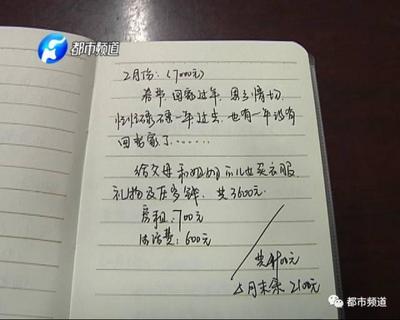 都市频道
2月份：(7000元)
春节，回家过年，思乡情切，
一年过去，也有一年没有
回老家了……
给父母和 买衣服、
礼物及压岁钱，共3600元。
房租：700元
生活费：600元
共4900元
月末余 2100元
都市频道